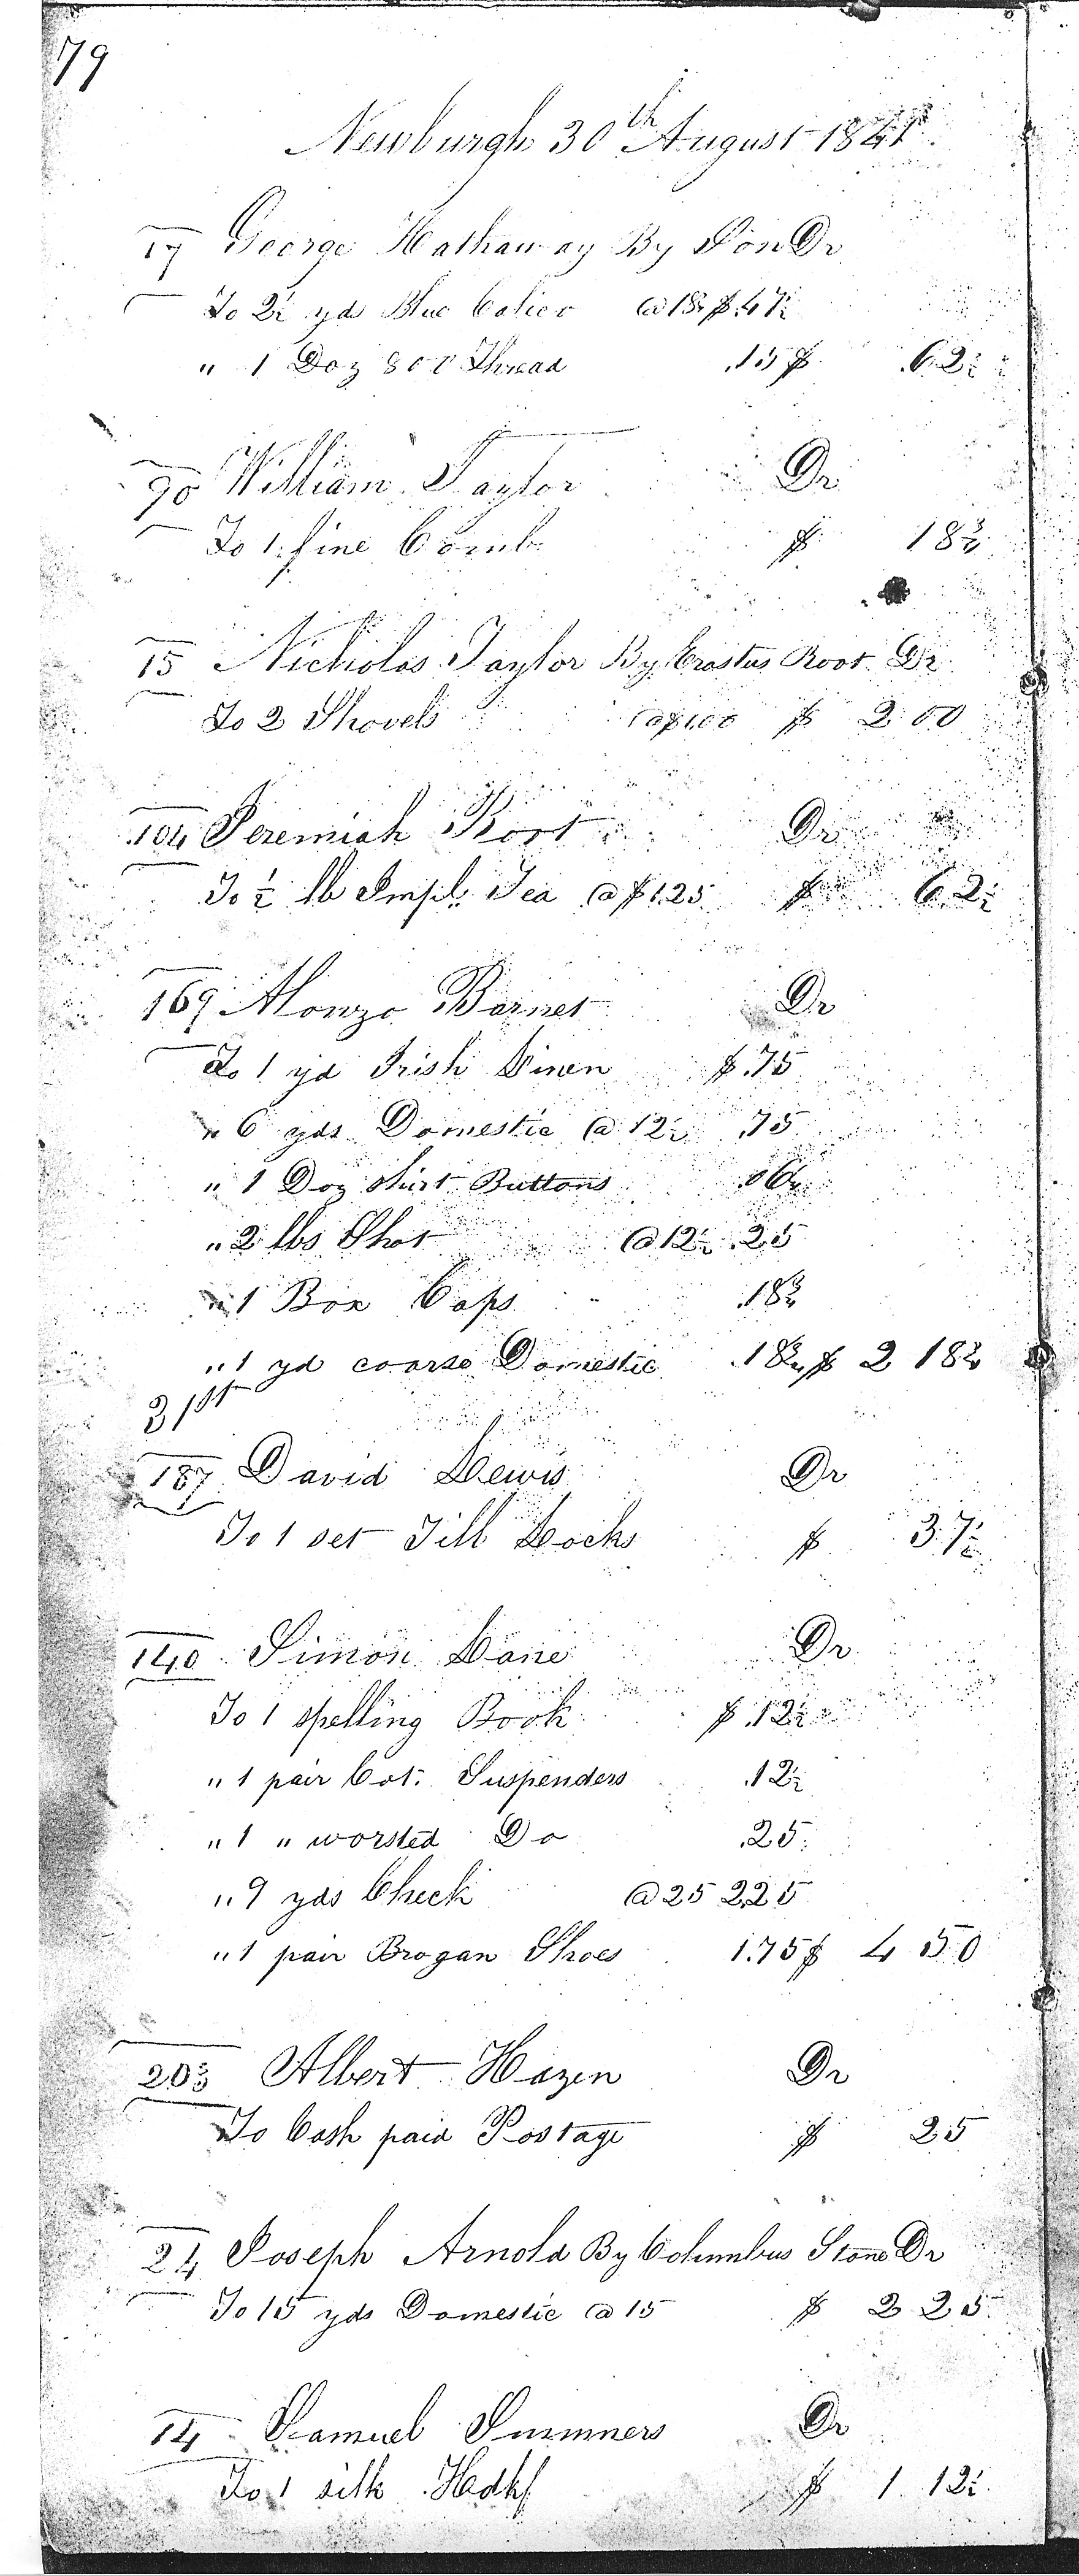 79
Newburgh 30th August 1841
17 George Hathaway By Son Dr
To 2½ yds Blue Calico @ 18¾ $.47½
" 1 Doz 800 Thread .15 $ .62½
90 William Taylor Dr
To 1 fine Comb $ 18¾
15 Nicholas Taylor By Erastus Root Dr
To 2 Shovels @ $1.00 $ 2 00
104 Jeremiah Root Dr
To ½ lb Impl. Tea @ $1.25 $ 62½
169 Alonzo Barnet Dr
To 1 yd Irish Linen $.75
" 6 yds Domestic @ 12½ .75
" 1 Doz Shirt Buttons .06¼
" 2 lbs Shot @ 12½ .25
" 1 Box Caps .18¾
" 1 yd coarse Domestic .18¾ $ 2 18¾
31st
187 David Lewis Dr
To 1 set Till Locks $ 37½
140 Simon Lane Dr
To 1 Spelling Book $.12½
" 1 pair Cot. Suspenders .12½
" 1 " worsted Do .25
" 9 yds Check @ 25 2.25
" 1 pair Brogan Shoes 1.75 $ 4 50
203 Albert Hazen Dr
To Cash paid Postage $ 25
24 Joseph Arnold By Columbus Stone Dr
To 15 yds Domestic @ 15 $ 2 25
14 Samuel Summers Dr
To 1 silk Hdkf $ 1 12½